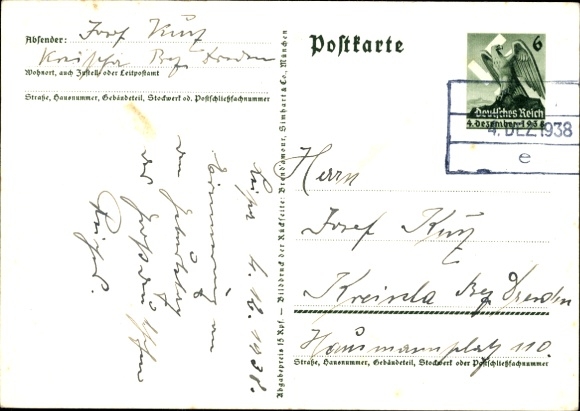 Absender: Josef Kurz
Kreischa Bez. Dresden
Wohnort, auch Zustell- oder Leitpostamt
Straße, Hausnummer, Gebäudeteil, Stockwerk od. Postschließfachnummer
Zur
Erinnerung an
den Geburtstag
des Großdeutschen
Reiches.
4. 12. 1938.
Abgabepreis 15 Rpf. — Bilddruck der Rückseite: Brend'amour, Simhart & Co., München
Postkarte
6
Deutsches Reich
4. Dezember 1938
4. DEZ 1938
e
Herrn
Josef Kurz
Kreischa Bez. Dresden
Haußmannplatz 110.
Straße, Hausnummer, Gebäudeteil, Stockwerk oder Postschließfachnummer